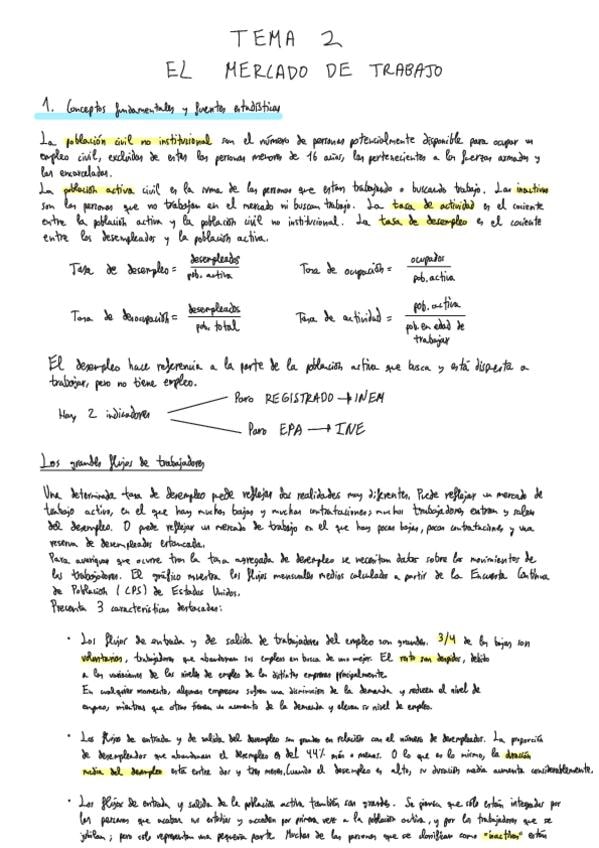 TEMA 2
EL MERCADO DE TRABAJO
1. Conceptos fundamentales y fuentes estadísticas
La población civil no institucional son el número de personas potencialmente disponible para ocupar un
empleo civil, excluidos de estas las personas menores de 16 años, las pertenecientes a las fuerzas armadas y
las encarceladas.
La población activa civil es la suma de las personas que están trabajando o buscando trabajo. Los inactivos
son las personas que no trabajan en el mercado ni buscan trabajo. La tasa de actividad es el cociente
entre la población activa y la población civil no institucional. La tasa de desempleo es el cociente
entre los desempleados y la población activa.
Tasa de desempleo = desempleados / pob. activa Tasa de ocupación = ocupados / pob. activa
Tasa de desocupación = desempleados / pob. total Tasa de actividad = pob. activa / pob. en edad de trabajar
El desempleo hace referencia a la parte de la población activa que busca y está dispuesta a
trabajar, pero no tiene empleo.
Paro REGISTRADO → INEM
Hay 2 indicadores
Paro EPA → INE
Los grandes flujos de trabajadores
Una determinada tasa de desempleo puede reflejar dos realidades muy diferentes. Puede reflejar un mercado de
trabajo activo, en el que hay muchas bajas y muchas contrataciones, muchos trabajadores entran y salen
del desempleo. O puede reflejar un mercado de trabajo en el que hay pocas bajas, pocas contrataciones y una
reserva de desempleados estancada.
Para averiguar que ocurre tras la tasa agregada de desempleo se necesitan datos sobre los movimientos de
los trabajadores. El gráfico muestra los flujos mensuales medios calculados a partir de la Encuesta Continua
de Población (CPS) de Estados Unidos.
Presenta 3 características destacadas:
• Los flujos de entrada y de salida de trabajadores del empleo son grandes. 3/4 de las bajas son
voluntarias, trabajadores que abandonan sus empleos en busca de uno mejor. El resto son despidos, debido
a las variaciones de los niveles de empleo de las distintas empresas principalmente.
En cualquier momento, algunas empresas sufren una disminución de la demanda y reducen el nivel de
empleo, mientras que otras tienen un aumento de la demanda y elevan su nivel de empleo.
• Los flujos de entrada y de salida del desempleo son grandes en relación con el número de desempleados. La proporción
de desempleados que abandonan el desempleo es del 44% más o menos. O lo que es lo mismo, la duración
media del desempleo está entre dos y tres meses. Cuando el desempleo es alto, su duración media aumenta considerablemente.
• Los flujos de entrada y salida de la población activa también son grandes. Se piensa que sólo están integrados por
las personas que acaban sus estudios y acceden por primera vez a la población activa, y por los trabajadores que se
jubilan; pero sólo representan una pequeña parte. Muchas de las personas que se clasifican como "inactivas" están